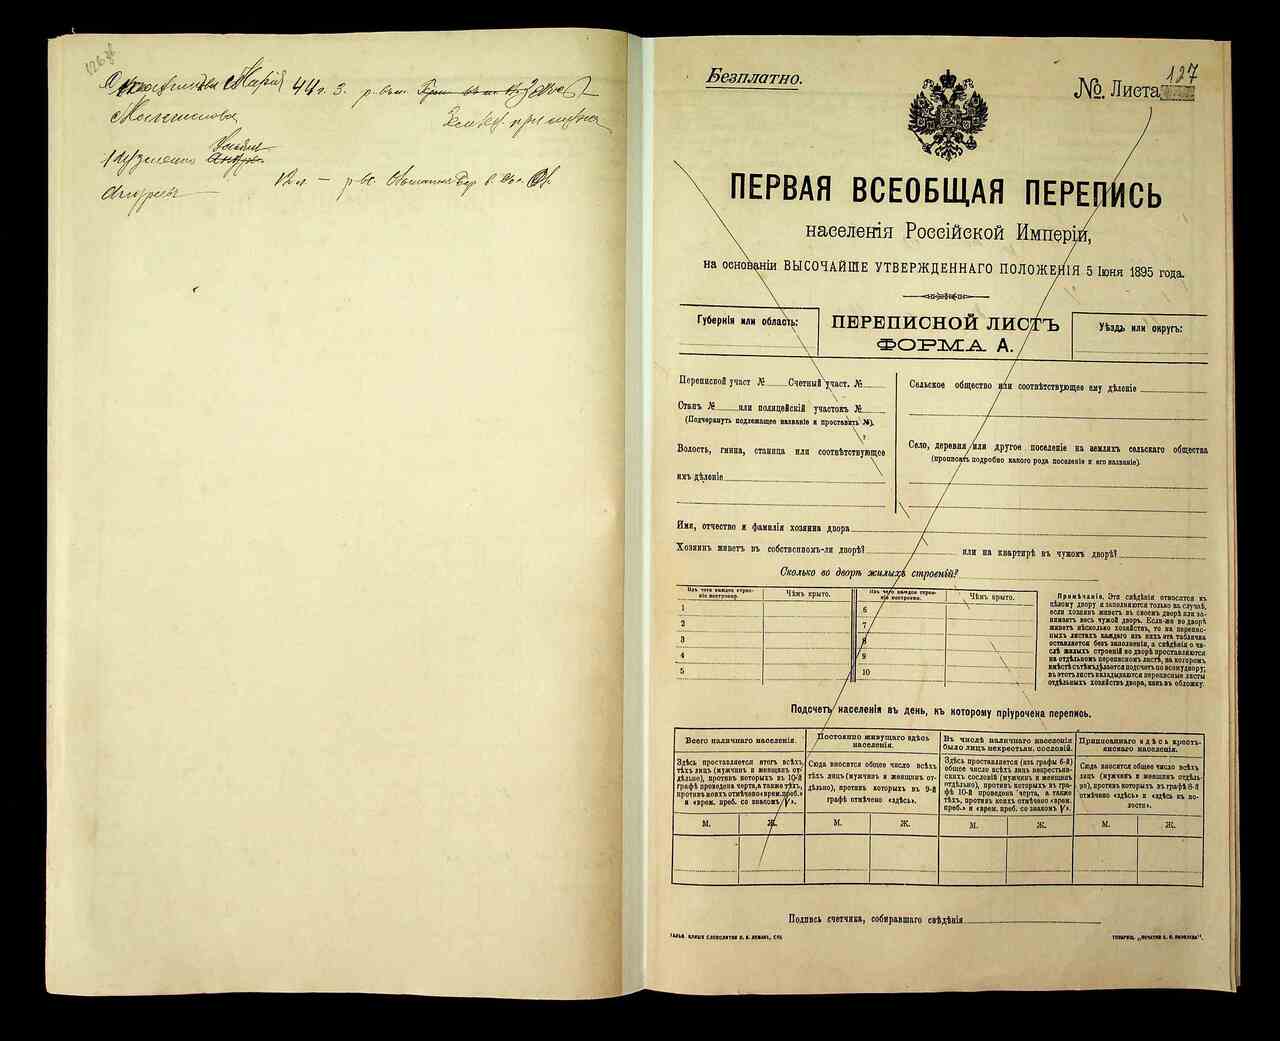 126
Мария 44 г. 3.
12 л. —
Безплатно.
127
№ Листа
ПЕРВАЯ ВСЕОБЩАЯ ПЕРЕПИСЬ
населенія Россійской Имперіи,
на основаніи ВЫСОЧАЙШЕ УТВЕРЖДЕННАГО ПОЛОЖЕНІЯ 5 Іюня 1895 года.
Губернія или область:
ПЕРЕПИСНОЙ ЛИСТЪ
ФОРМА А.
Уѣздъ или округъ:
Переписной участ № Счетный участ. №
Станъ № или полицейскій участокъ №
(Подчеркнуть подлежащее названіе и проставить №).
Волость, гмина, станица или соотвѣтствующее
имъ дѣленіе
Сельское общество или соотвѣтствующее ему дѣленіе
Село, деревня или другое поселеніе на земляхъ сельскаго общества
(прописать подробно какого рода поселеніе и его названіе).
Имя, отчество и фамилія хозяина двора
Хозяинъ живетъ въ собственномъ-ли дворѣ? или на квартирѣ въ чужомъ дворѣ?
Сколько во дворѣ жилыхъ строеній?
Изъ чего каждое строе-
ніе построено.
Чѣмъ крыто.
Изъ чего каждое строе-
ніе построено.
Чѣмъ крыто.
1 6
2 7
3 8
4 9
5 10
Примѣчаніе. Эти свѣдѣнія относятся къ
цѣлому двору и заполняются только въ случаѣ,
если хозяинъ живетъ въ своемъ дворѣ или за-
нимаетъ весь чужой дворъ. Если-же во дворѣ
живетъ нѣсколько хозяйствъ, то на перепис-
ныхъ листахъ каждаго изъ нихъ эта табличка
оставляется безъ заполненія, а свѣдѣнія о чи-
слѣ жилыхъ строеній во дворѣ проставляются
на отдѣльномъ переписномъ листѣ, на которомъ
вмѣстѣ съ тѣмъ дѣлается подсчетъ по всему двору;
въ этотъ листъ вкладываются переписные листы
отдѣльныхъ хозяйствъ двора, какъ въ обложку.
Подсчетъ населенія въ день, къ которому пріурочена перепись.
Всего наличнаго населенія.
Здѣсь проставляется итогъ всѣхъ
тѣхъ лицъ (мужчинъ и женщинъ от-
дѣльно), противъ которыхъ въ 10-й
графѣ проведена черта, а также тѣхъ,
противъ коихъ отмѣчено «врем. преб.»
и «врем. преб. со знакомъ V».
Постоянно живущаго здѣсь
населенія.
Сюда вносится общее число всѣхъ
тѣхъ лицъ (мужчинъ и женщинъ от-
дѣльно), противъ которыхъ въ 9-й
графѣ отмѣчено «здѣсь».
Въ числѣ наличнаго населенія
было лицъ некрестьян. сословій.
Здѣсь проставляется (изъ графы 6-й)
общее число всѣхъ лицъ некрестьян-
скихъ сословій (мужчинъ и женщинъ
отдѣльно), противъ которыхъ въ гра-
фѣ 10-й проведена черта, а также
тѣхъ, противъ коихъ отмѣчено «врем.
преб.» и «врем. преб. со знакомъ V».
Приписаннаго здѣсь кресть-
янскаго населенія.
Сюда вносится общее число всѣхъ
лицъ (мужчинъ и женщинъ отдѣль-
но), противъ которыхъ въ графѣ 8-й
отмѣчено «здѣсь» и «здѣсь къ во-
лости».
М. Ж. М. Ж. М. Ж. М. Ж.
Подпись счетчика, собиравшаго свѣдѣнія